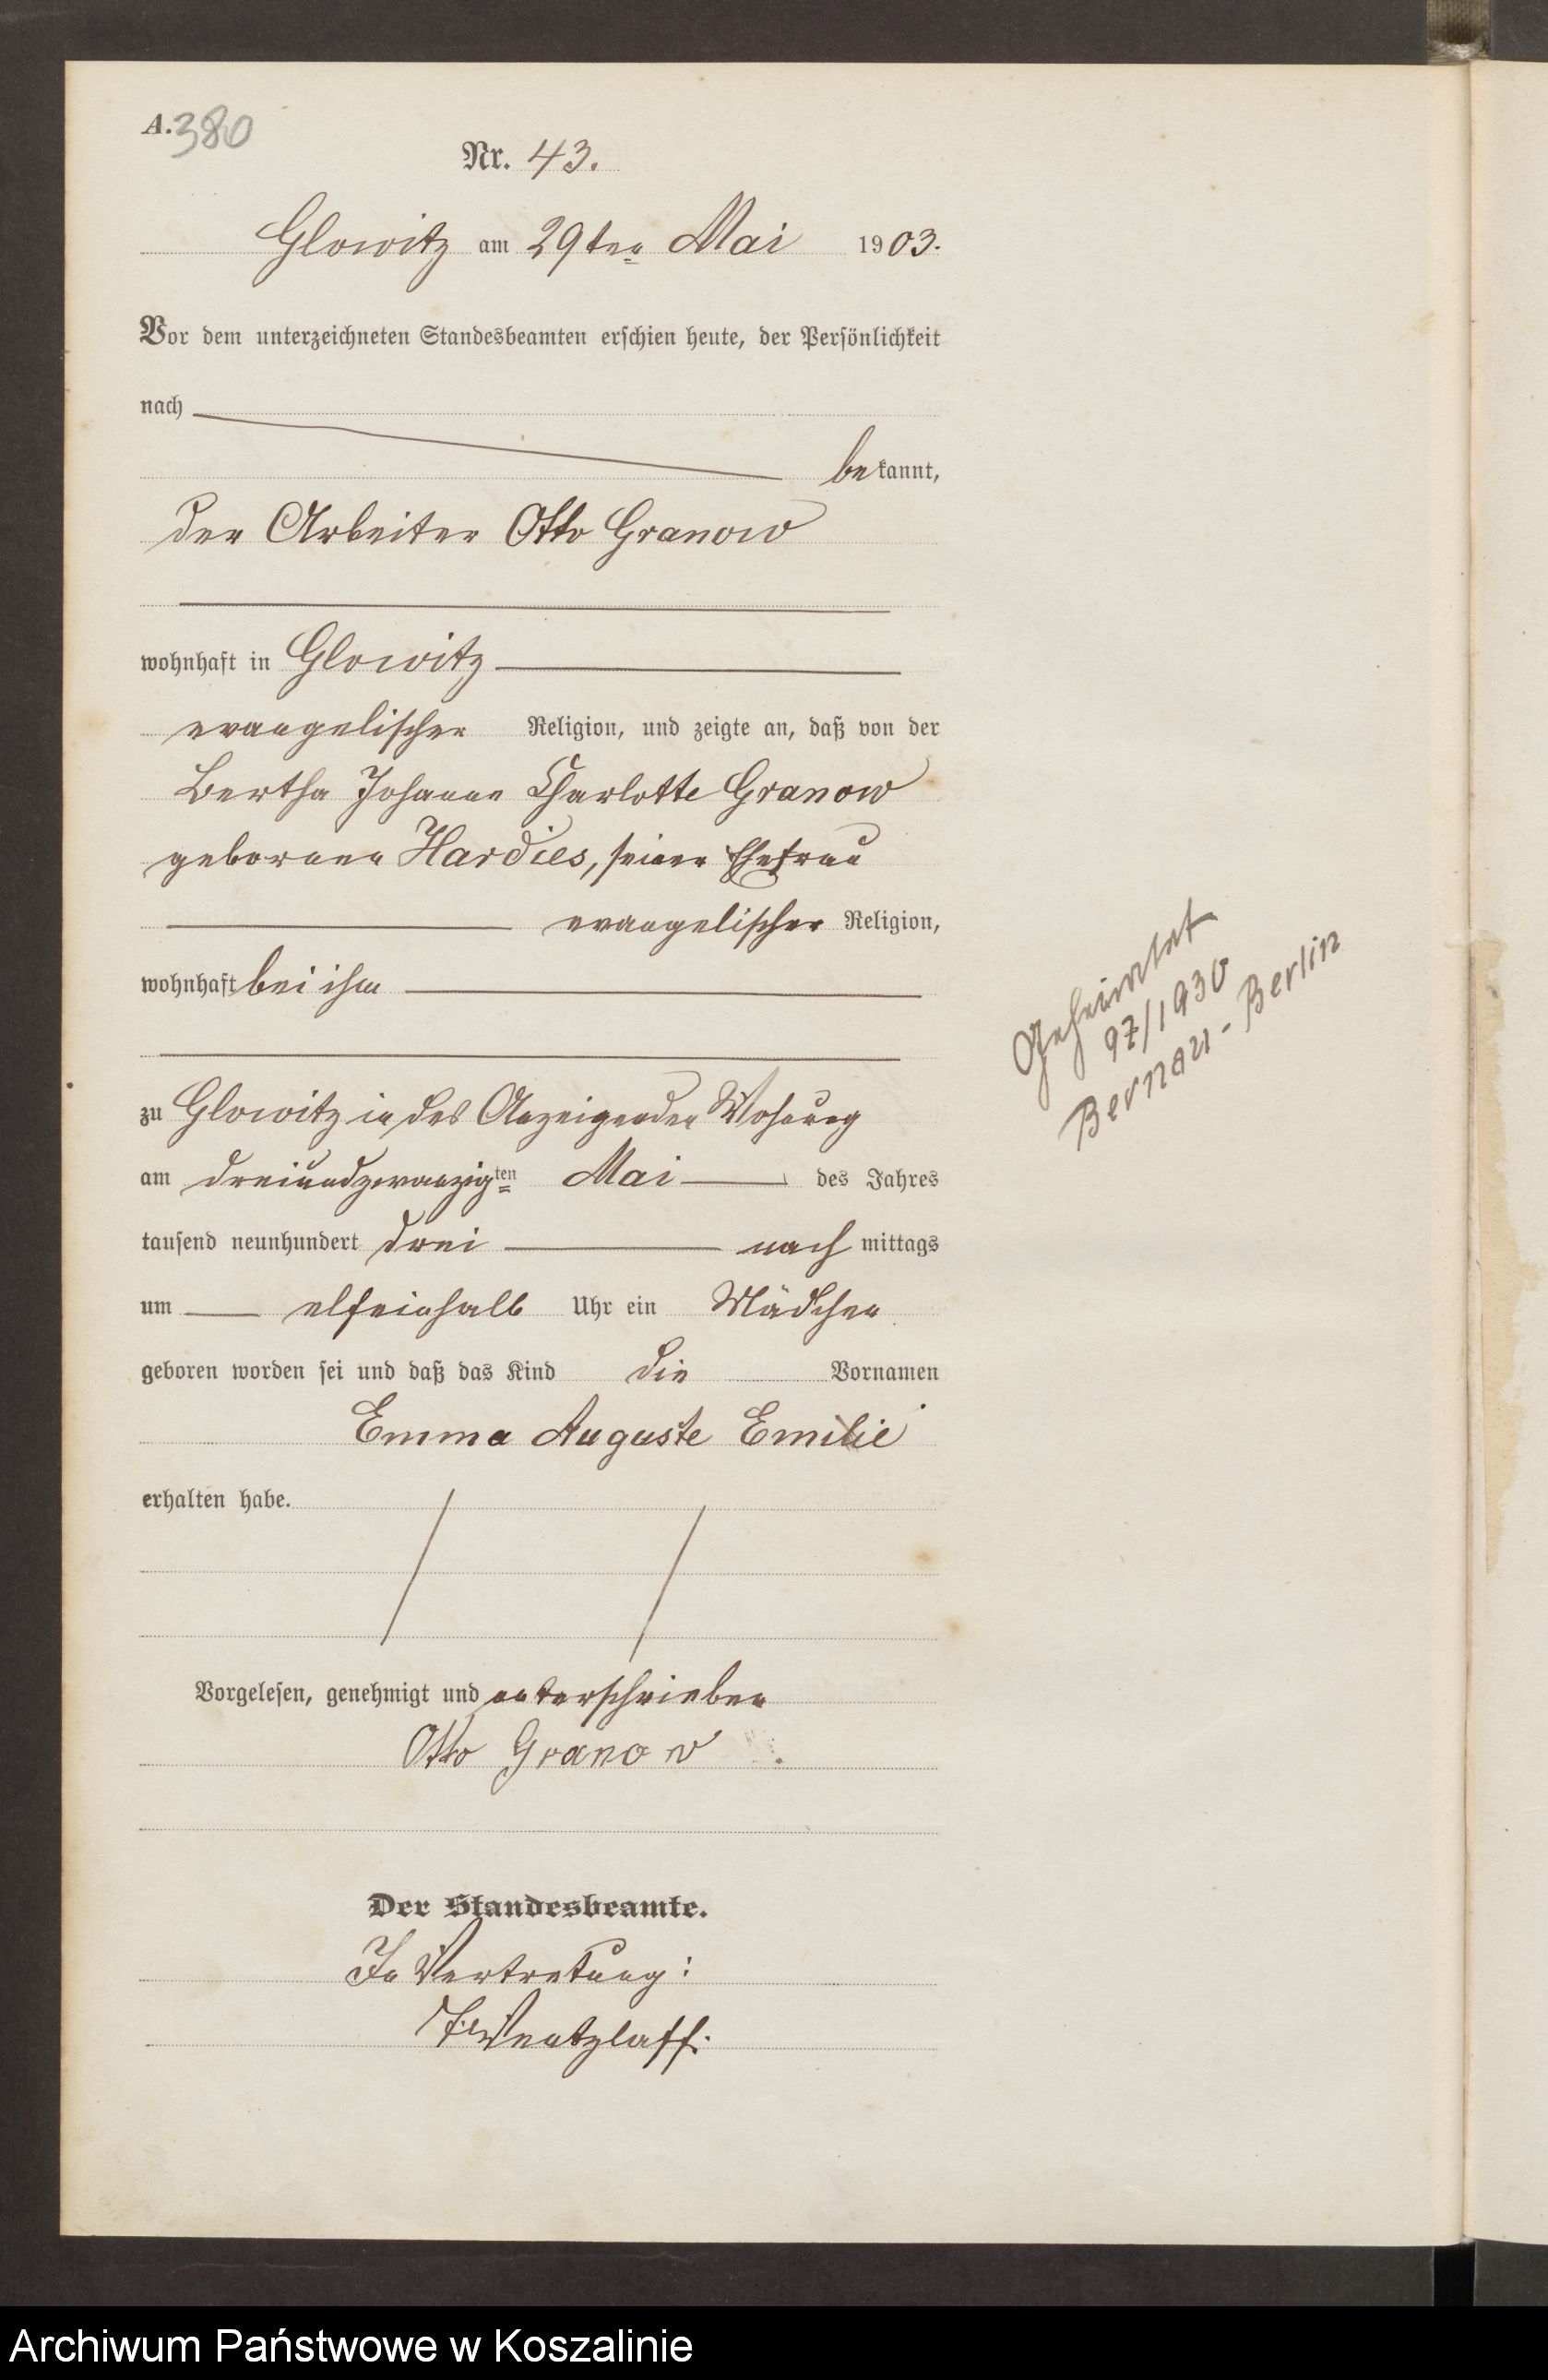 A. 380
Nr. 43.
Glowitz am 29ten Mai 1903.
Vor dem unterzeichneten Standesbeamten erschien heute, der Persönlichkeit
nach
bekannt,
der Arbeiter Otto Granow
wohnhaft in Glowitz
evangelischer Religion, und zeigte an, daß von der
Bertha Johanne Charlotte Granow
geborenen Hardies, seiner Ehefrau
evangelischer Religion,
wohnhaft bei ihm
zu Glowitz in des Anzeigenden Wohnung
am dreiundzwanzigten Mai des Jahres
tausend neunhundert drei nachmittags
um elfeinhalb Uhr ein Mädchen
geboren worden sei und daß das Kind die Vornamen
Emma Auguste Emilie
erhalten habe.
Vorgelesen, genehmigt und unterschrieben
Otto Granow.
Der Standesbeamte.
In Vertretung:
Wentzlaff.
Geheiratet
97/1930
Bernau-Berlin
Archiwum Państwowe w Koszalinie